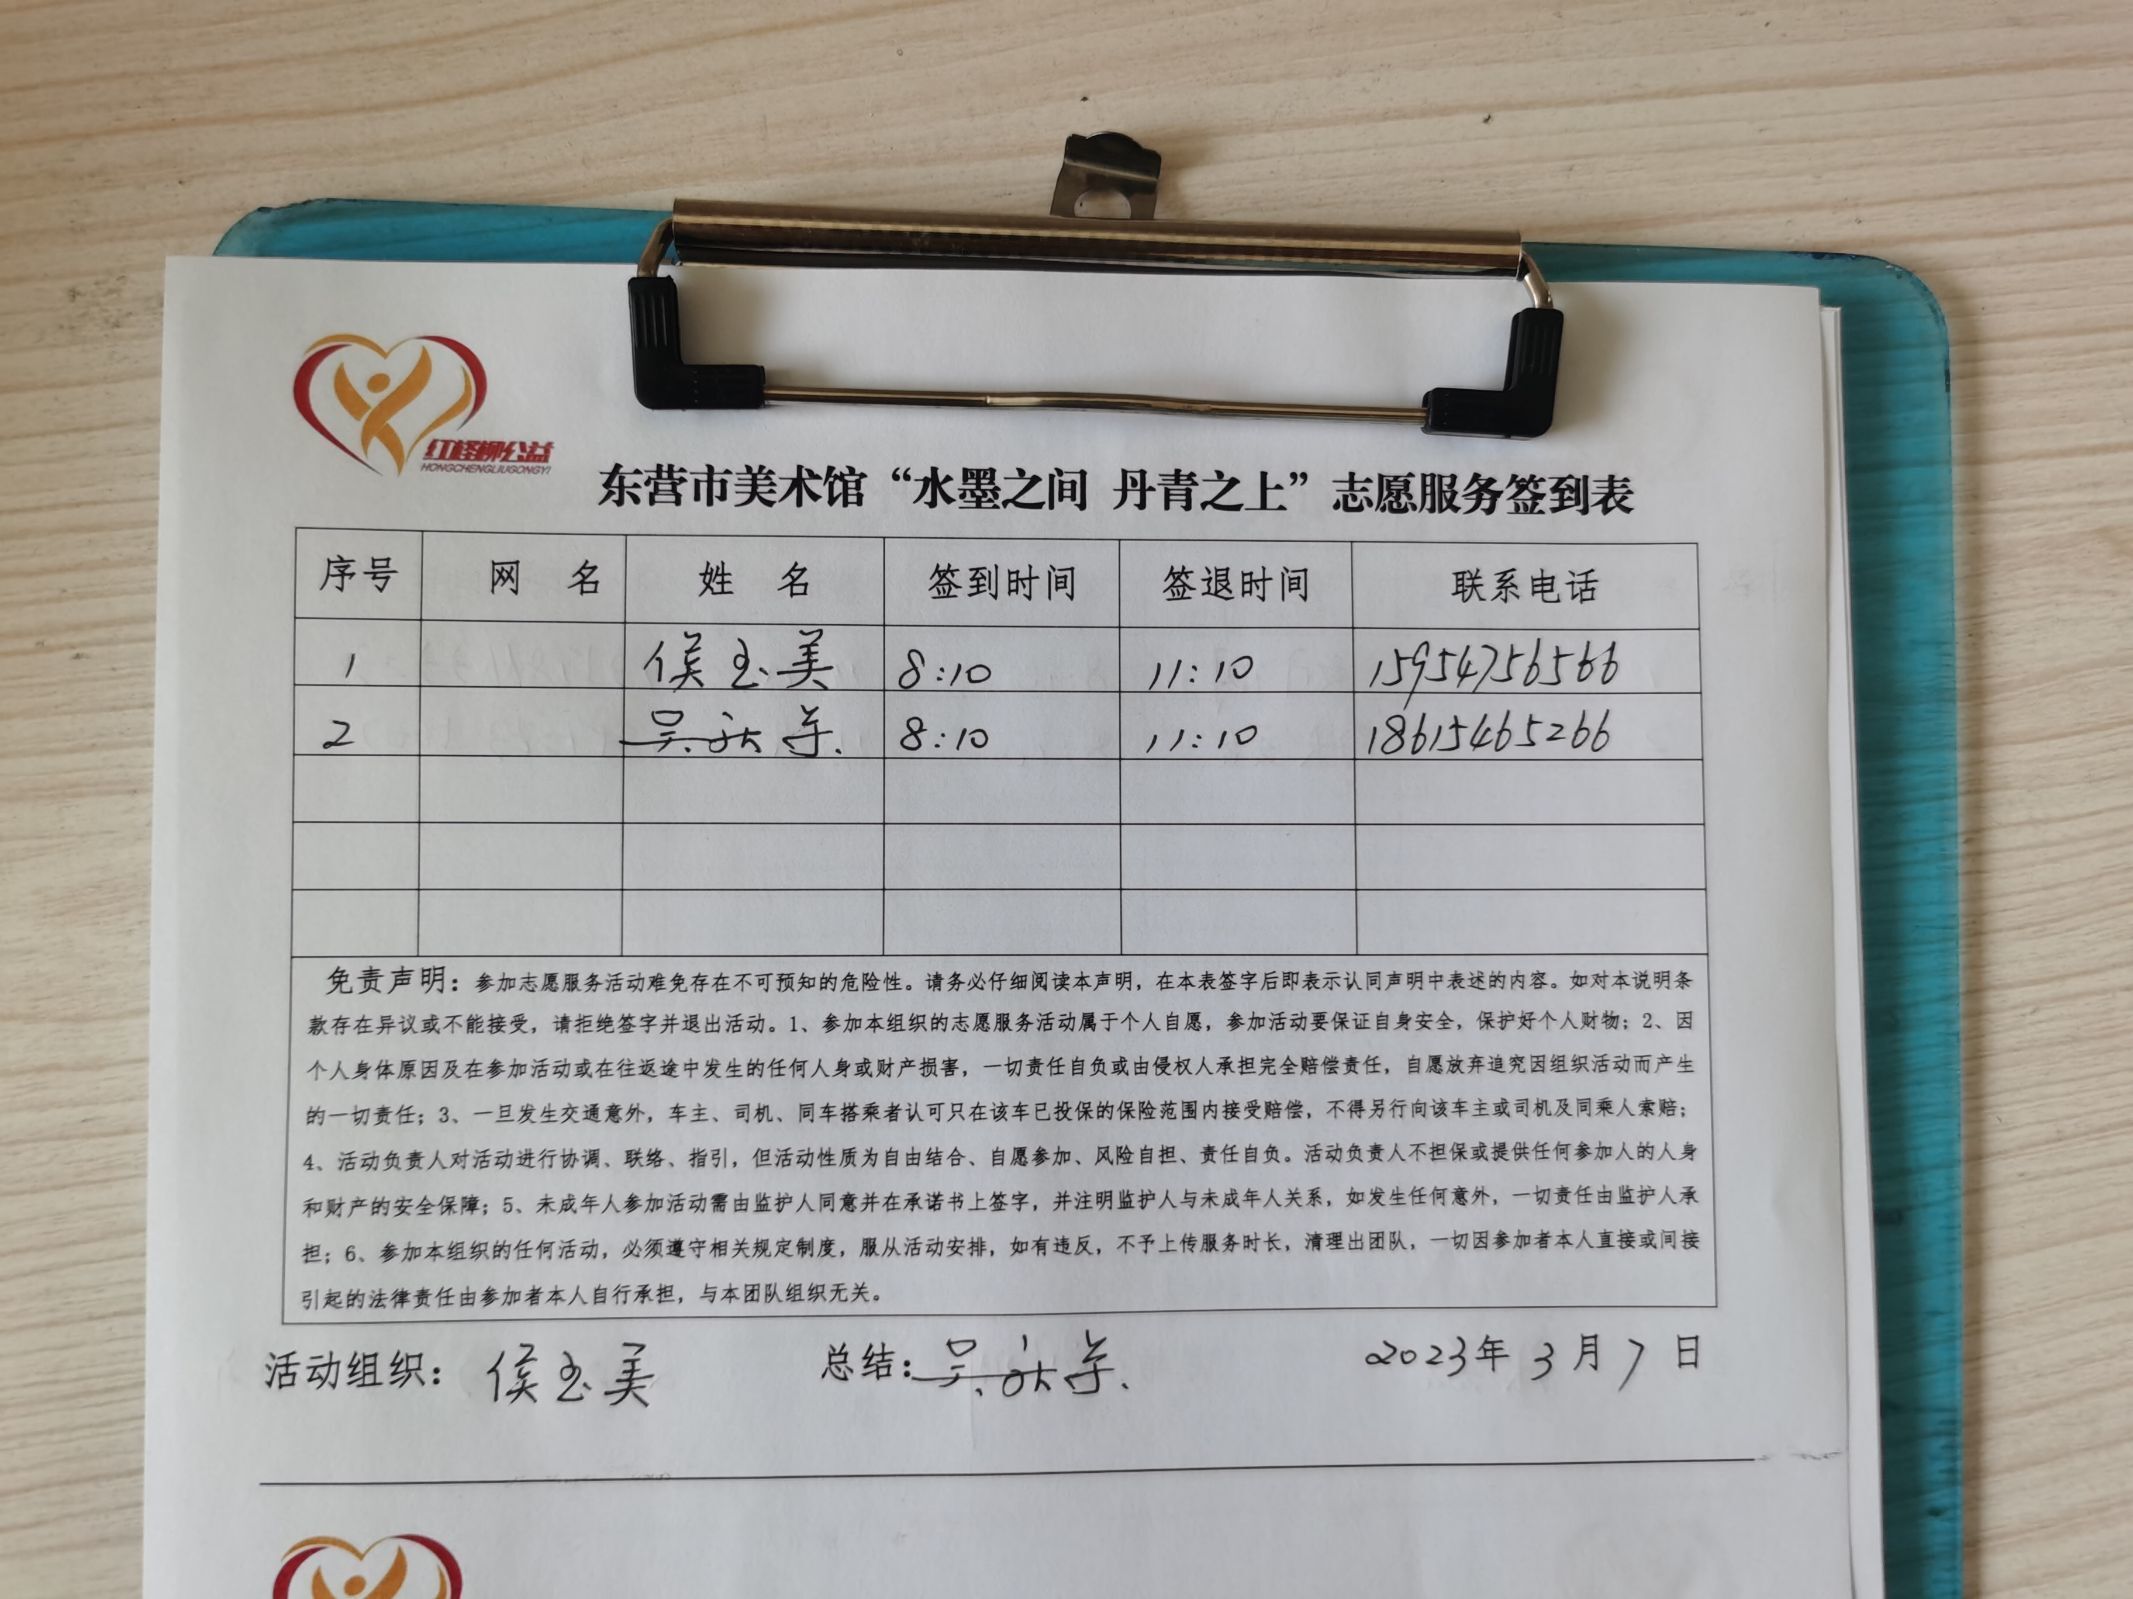 红柽柳公益
HONGCHENGLIUGONGYI
东营市美术馆“水墨之间 丹青之上”志愿服务签到表
序号 网 名 姓 名 签到时间 签退时间 联系电话
1 侯玉美 8:10 11:10 15954756566
2 吴 8:10 11:10 18615465266
免责声明：参加志愿服务活动难免存在不可预知的危险性。请务必仔细阅读本声明，在本表签字后即表示认同声明中表述的内容。如对本说明条
款存在异议或不能接受，请拒绝签字并退出活动。1、参加本组织的志愿服务活动属于个人自愿，参加活动要保证自身安全，保护好个人财物；2、因
个人身体原因及在参加活动或在往返途中发生的任何人身或财产损害，一切责任自负或由侵权人承担完全赔偿责任，自愿放弃追究因组织活动而产生
的一切责任；3、一旦发生交通意外，车主、司机、同车搭乘者认可只在该车已投保的保险范围内接受赔偿，不得另行向该车主或司机及同乘人索赔；
4、活动负责人对活动进行协调、联络、指引，但活动性质为自由结合、自愿参加、风险自担、责任自负。活动负责人不担保或提供任何参加人的人身
和财产的安全保障；5、未成年人参加活动需由监护人同意并在承诺书上签字，并注明监护人与未成年人关系，如发生任何意外，一切责任由监护人承
担；6、参加本组织的任何活动，必须遵守相关规定制度，服从活动安排，如有违反，不予上传服务时长，清理出团队，一切因参加者本人直接或间接
引起的法律责任由参加者本人自行承担，与本团队组织无关。
活动组织：侯玉美 总结：吴 2023年3月7日